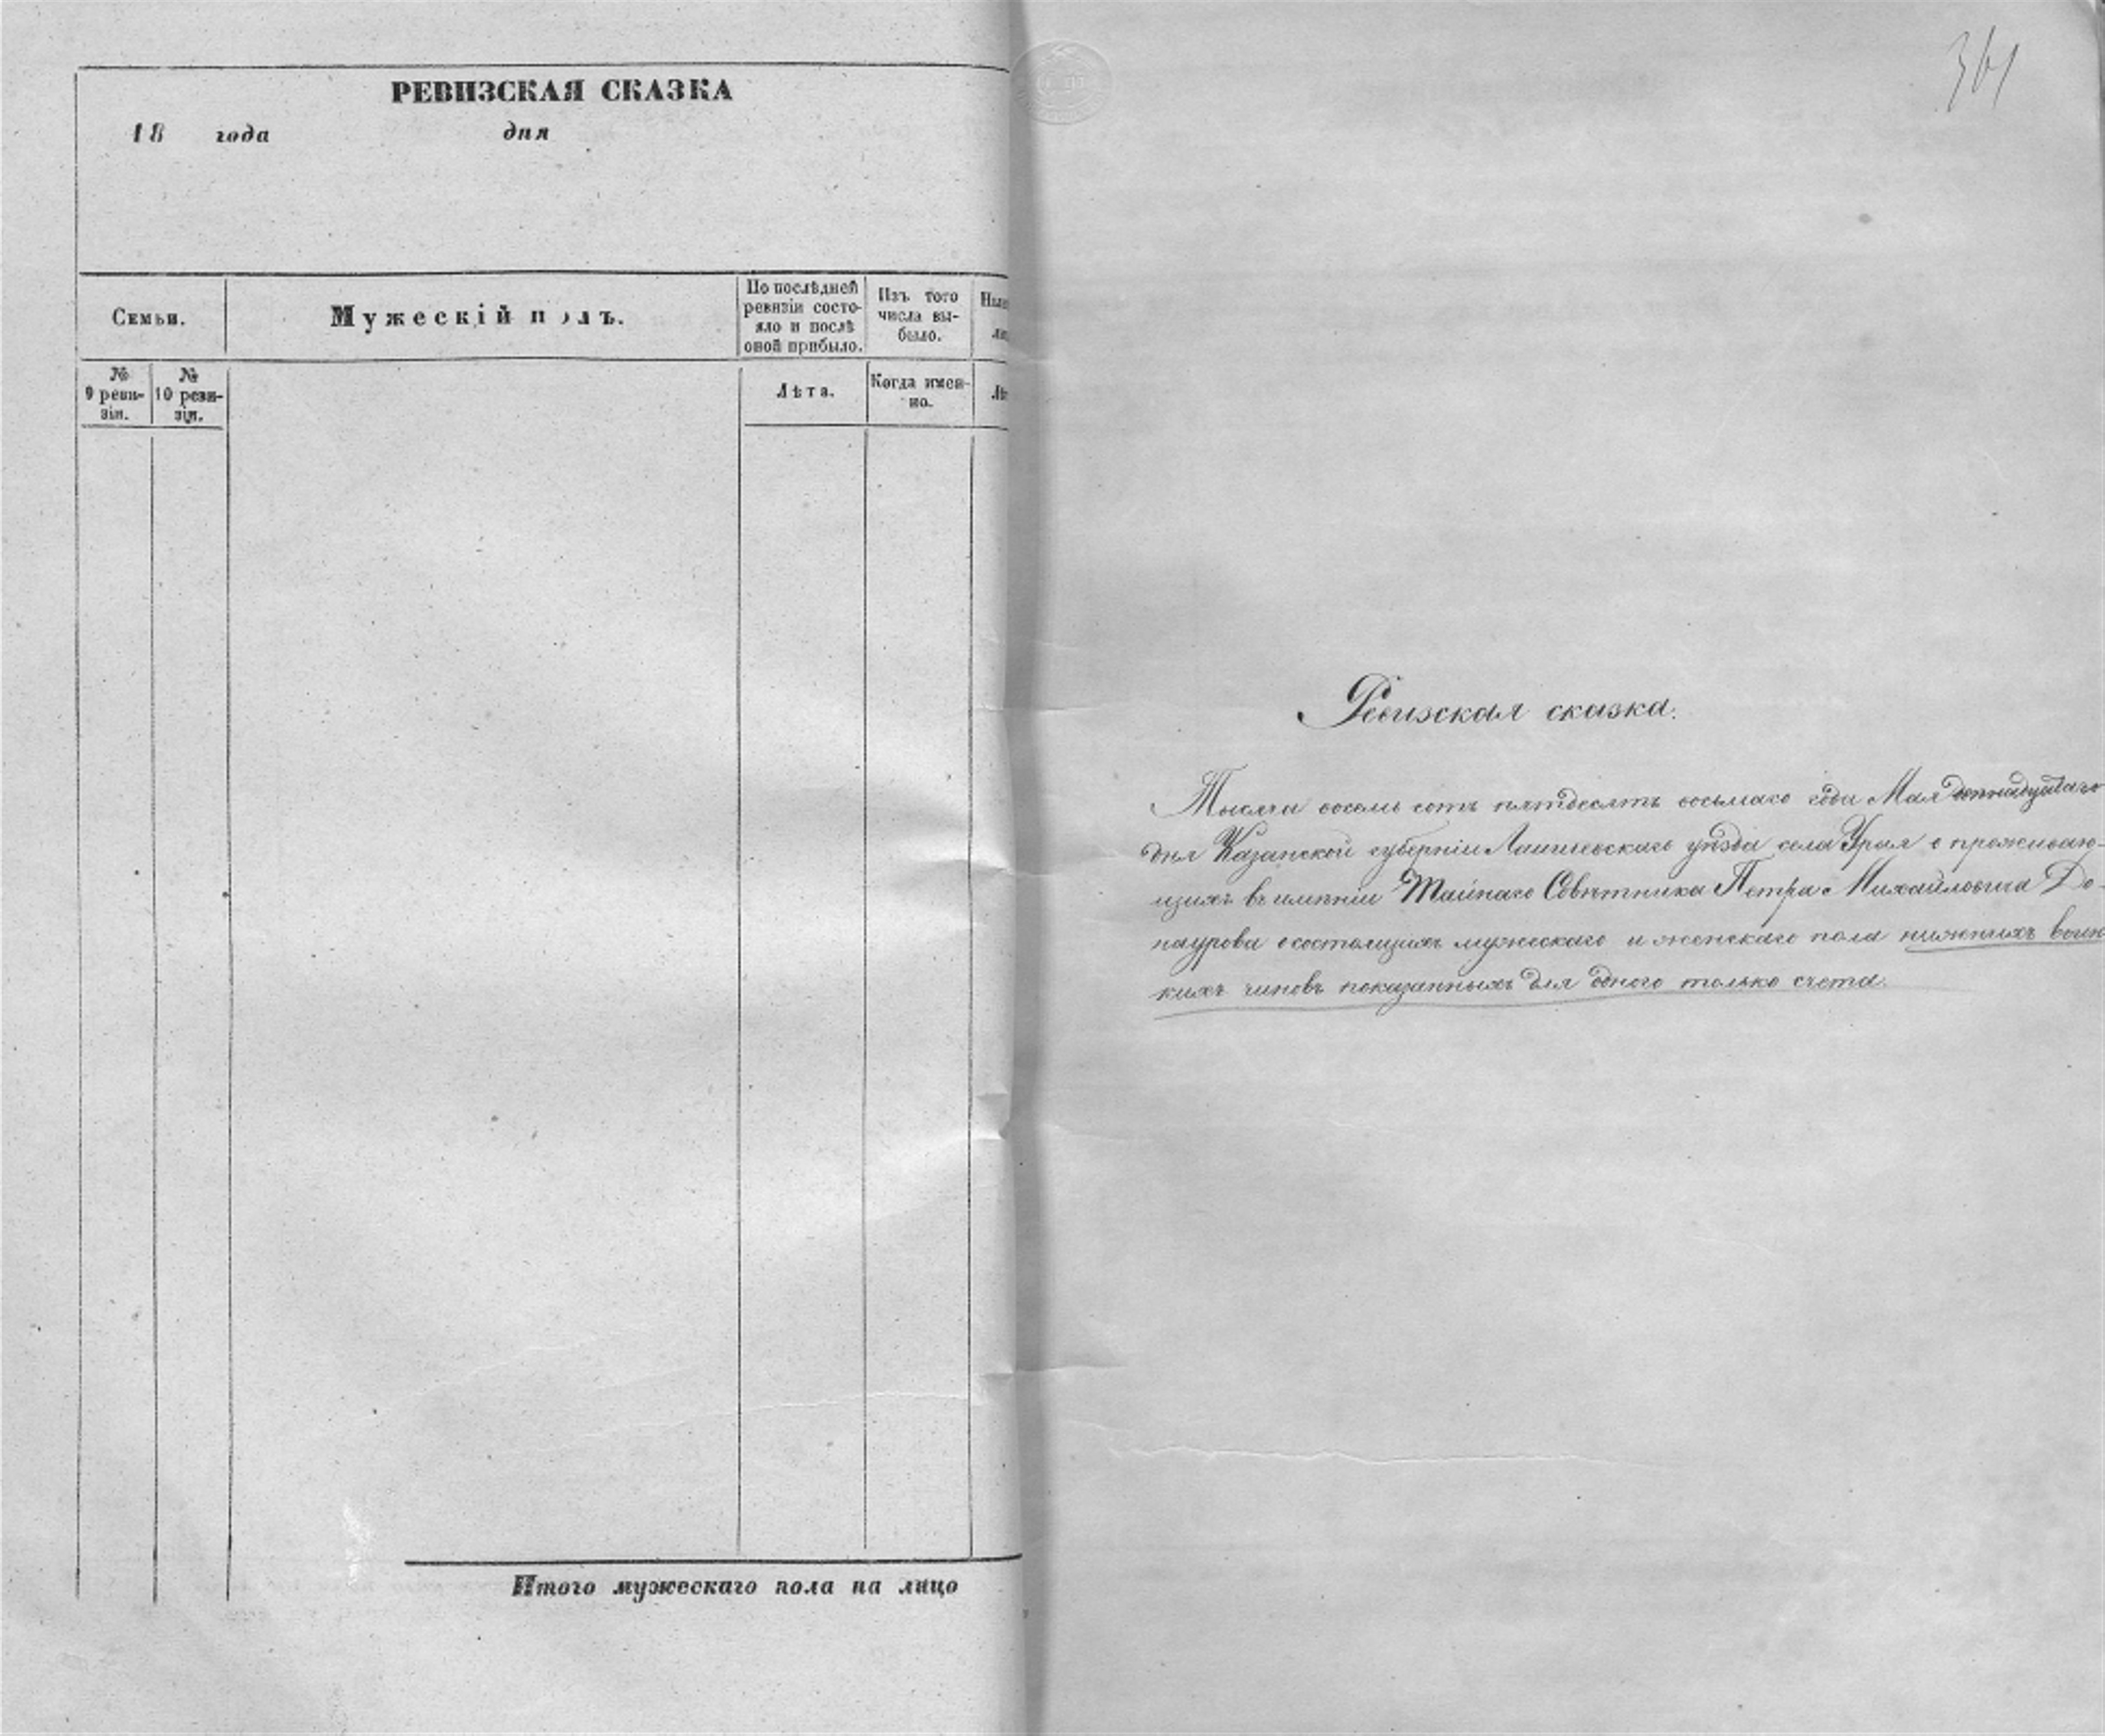 РЕВИЗСКАЯ СКАЗКА
18 года дня
Семьи.
Мужескій полъ.
По послѣдней
ревизіи состо-
яло и послѣ
оной прибыло.
Изъ того
числа вы-
было.
№
9 реви-
зіи.
№
10 реви-
зіи.
Лѣта.
Когда имен-
но.
Итого мужескаго пола на лицо
361
Ревизская сказка.
Тысяча восемь сотъ пятдесятъ восьмаго года Мая
дня Казанской губерніи Лаишевскаго уѣзда села Урая о проживаю-
щихъ въ имѣніи Тайнаго Совѣтника Петра Михайловича До-
наурова о состоящихъ мужескаго и женскаго пола нижнихъ воинс
кихъ чиновъ показанныхъ для одного только счета.